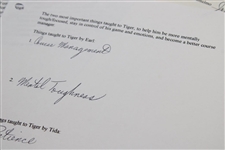 The two most important things taught to Tiger, to help him be more mentally
tough/focused, stay in control of his game and emotions, and become a better course
manager.
Things taught to Tiger by Earl
Course Management
2 Mental Toughness
Things taught to Tiger by Tida
Patience